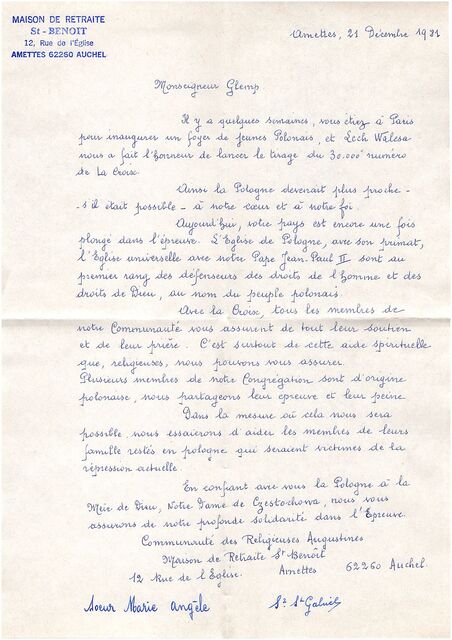 MAISON DE RETRAITE
St - BENOIT
12, Rue de l'Église
AMETTES 62260 AUCHEL
Amettes, 21 Décembre 1981
Monseigneur Glemp.
Il y a quelques semaines, vous étiez à Paris
pour inaugurer un foyer de jeunes Polonais, et Lech Walesa
nous a fait l'honneur de lancer le tirage du 30.000e numéro
de La Croix.
Ainsi la Pologne devenait plus proche -
s'il était possible - à notre cœur et à notre foi.
Aujourd'hui, votre pays est encore une fois
plongé dans l'épreuve. L'Eglise de Pologne, avec son primat,
l'Eglise universelle avec notre Pape Jean-Paul II sont au
premier rang des défenseurs des droits de l'homme et des
droits de Dieu, au nom du peuple polonais.
Avec la Croix, tous les membres de
notre Communauté vous assurent de tout leur soutien
et de leur prière. C'est surtout de cette aide spirituelle
que, religieuses, nous pouvons vous assurer.
Plusieurs membres de notre Congrégation sont d'origine
polonaise, nous partageons leur épreuve et leur peine.
Dans la mesure où cela nous sera
possible, nous essaierons d'aider les membres de leurs
famille restés en pologne qui seraient victimes de la
répression actuelle.
En confiant avec vous la Pologne à la
Mère de Dieu, Notre Dame de Czestochowa, nous vous
assurons de notre profonde solidarité dans l'Epreuve.
Communauté des Religieuses Augustines
Maison de Retraite St Benoît
12 Rue de l'Eglise. Amettes 62260 Auchel.
Soeur Marie Angèle Sr St Gabriel